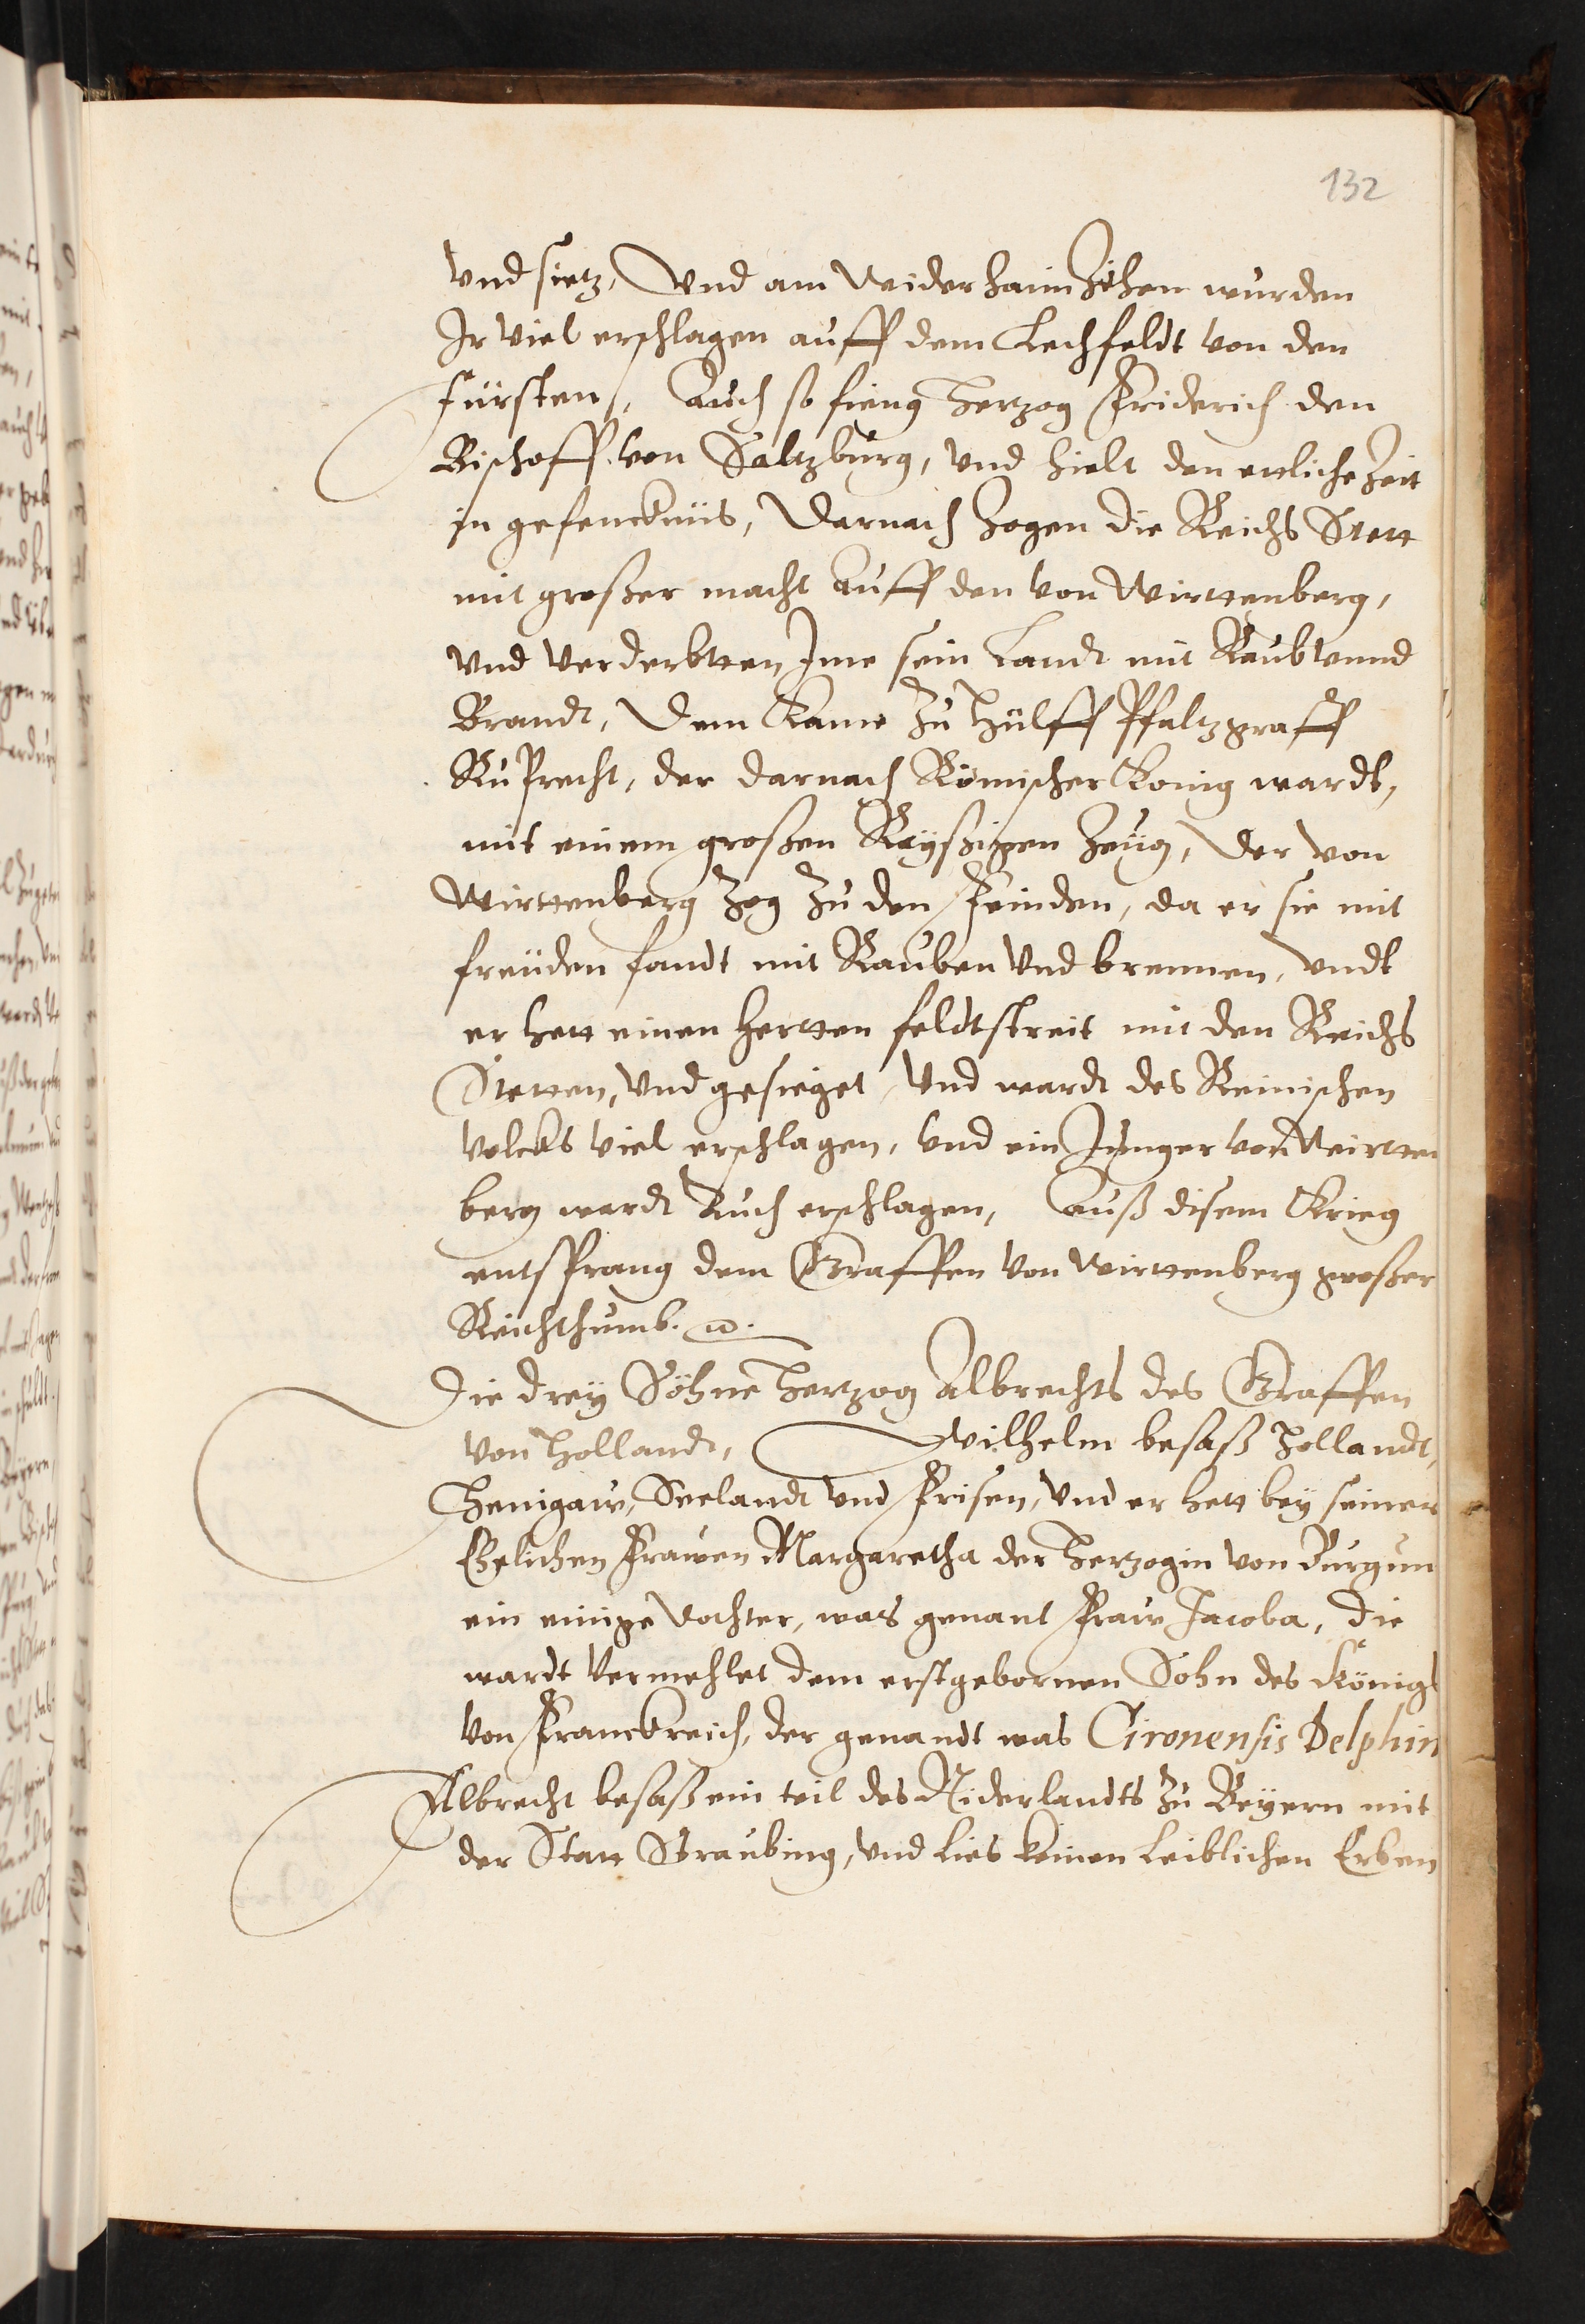 132
Vnd sietz, Vnd am widerhaimZihen wurden
Ir viel erschlagen auff dem Lechfeldt von den
fürsten, Auch so fieng Hertzog Friderich den
Bischoff von Saltzburg, vnd hielt den ettliche Zeit
in gefencknüs, Darnach Zogen die Reichs Stett
mit großer macht Auff den von Wirttenberg,
vnd Verderbtten Ime sein Landt mit Raub vnnd
Brandt, Dem kame Zu Hülff Pfaltzgraff
Ruprecht, der darnach Römischer König wardt,
mit einem großen Reyßigen Zeug, Der von
Wirttenberg Zog Zu den Feinden, da er sie mit
freüden fandt mit Rauben Vnd brennen, vndt
er hett einen hertten feldtstreit mit den Reichs
Stetten, Vnd gesieget, Vnd wardt des Reinischen
volcks viel erschlagen, Vnd ein Junger von Wirtten
berg wardt Auch erschlagen, Auß disem Krieg
entsprang dem Graffen von Wirttenberg großer
Reichthumb. ꝛc.
Die drey Söhne Hertzog Albrechts des Graffen
von Hollandt, Wilhelm besaß Hollandt,
Henigaw, Seelandt vnd Frisen, vnd er hett bey seiner
Ehelichen Frawen Margaretha der Hertzogin von Burgun
ein einige Tochter, was genant Fraw Jacoba, die
wardt Vermehlet dem erstgebornen Sohn des Königs
von Franckreich, der genandt was Gironensis Delphin
Albrecht besaß ein teil des Niderlandts Zu Beyern mit
der Statt Straubing, vnd lies keinen Leiblichen Erben